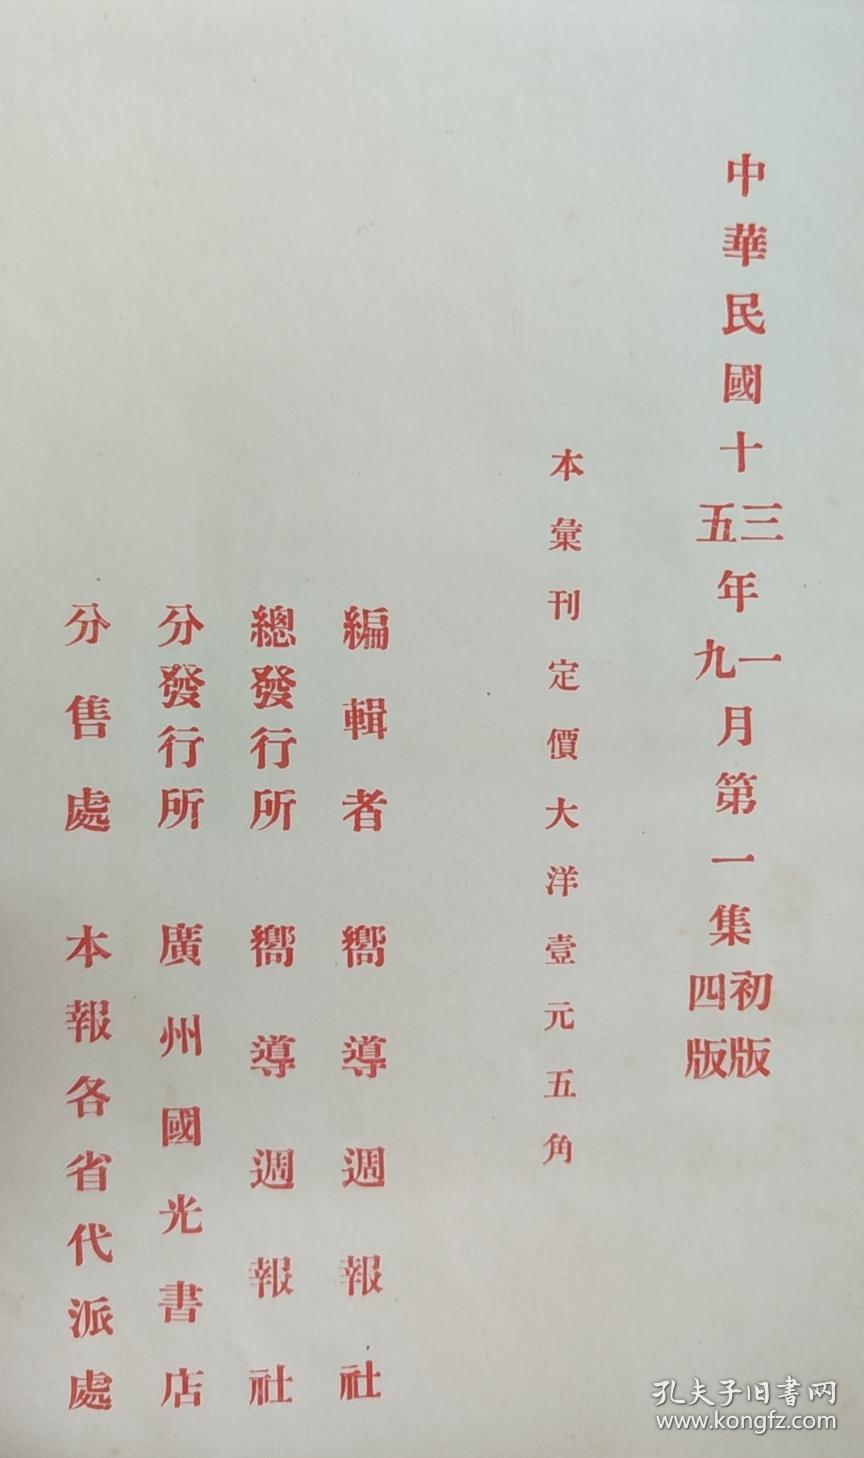 中華民國十三五年一九月第一集初版四版
本彙刊定價大洋壹元五角
編輯者 嚮導週報社
總發行所 嚮導週報社
分發行所 廣州國光書店
分售處 本報各省代派處
孔夫子旧書网
www.kongfz.com